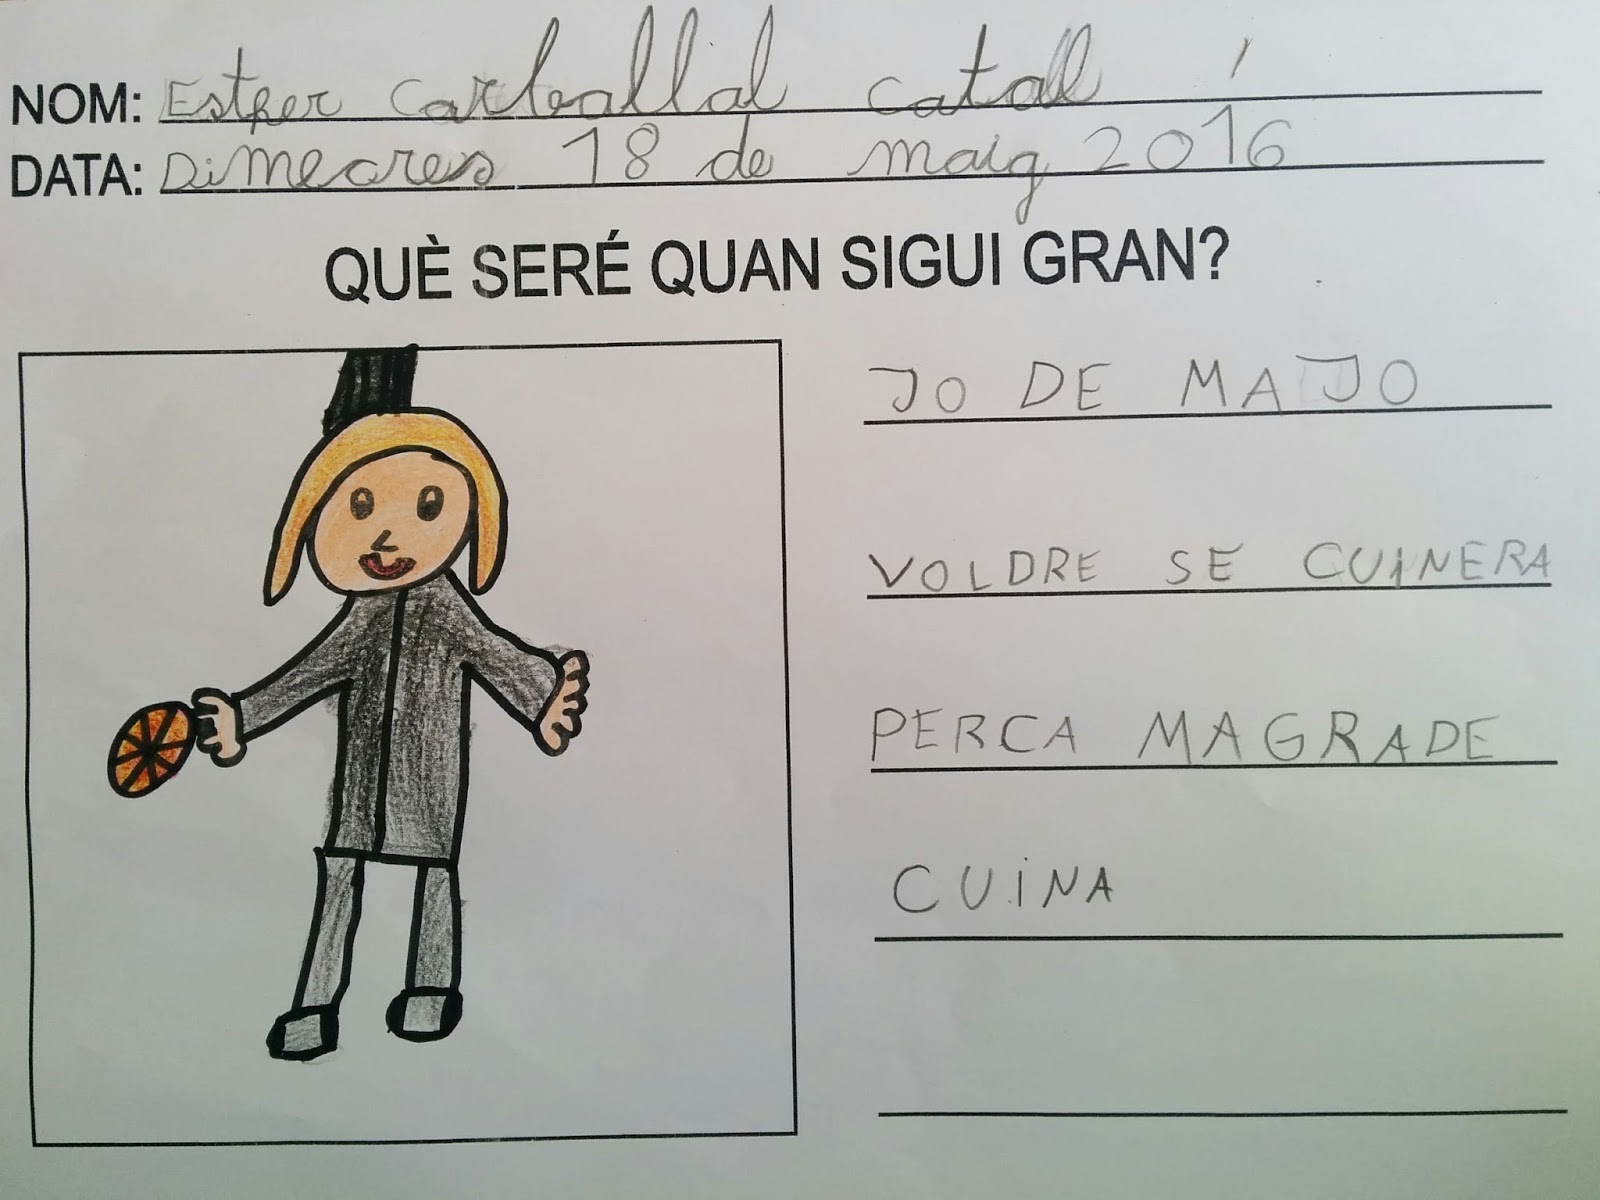 NOM: Esther Carballal Catall
DATA: Dimecres 18 de maig 2016
QUÈ SERÉ QUAN SIGUI GRAN?
JO DE MAJO
VOLDRE SE CUINERA
PERCA MAGRADE
CUINA